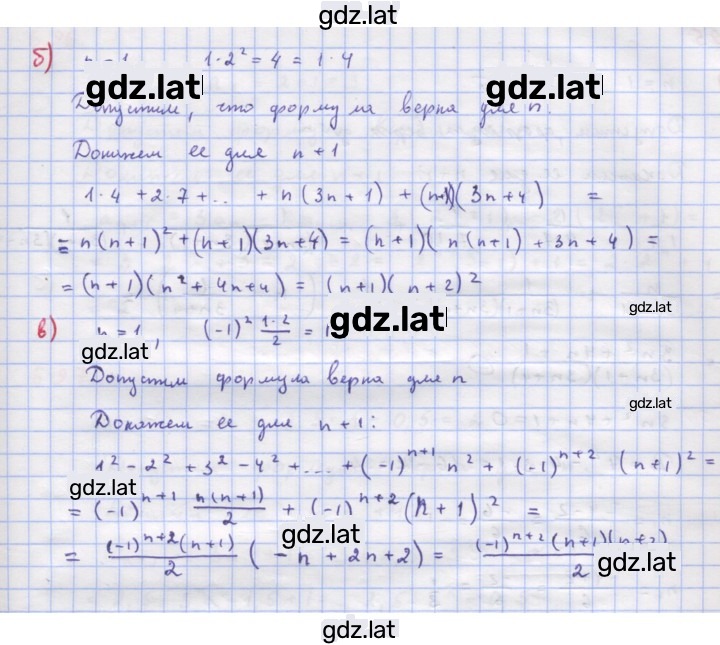 gdz.lat
б) n = 1 1·2² = 4 = 1·4
gdz.lat gdz.lat
Допустим, что формула верна для n.
Докажем ее для n + 1
1·4 + 2·7 + ... + n(3n + 1) + (n+1)(3n+4) =
= n(n+1)² + (n+1)(3n+4) = (n+1)(n(n+1) + 3n + 4) =
= (n+1)(n² + 4n + 4) = (n+1)(n+2)²
gdz.lat
в) n = 1, (-1)² 1·2/2 = 1
gdz.lat
gdz.lat
Допустим формула верна для n
gdz.lat
Докажем ее для n + 1:
1² - 2² + 3² - 4² + ... + (-1)ⁿ⁺¹ n² + (-1)ⁿ⁺² (n+1)² =
gdz.lat
= (-1)ⁿ⁺¹ n(n+1)/2 + (-1)ⁿ⁺² (n+1)² =
gdz.lat
= (-1)ⁿ⁺²(n+1)/2 (-n + 2n + 2) = (-1)ⁿ⁺²(n+1)(n+2)/2
gdz.lat
gdz.lat